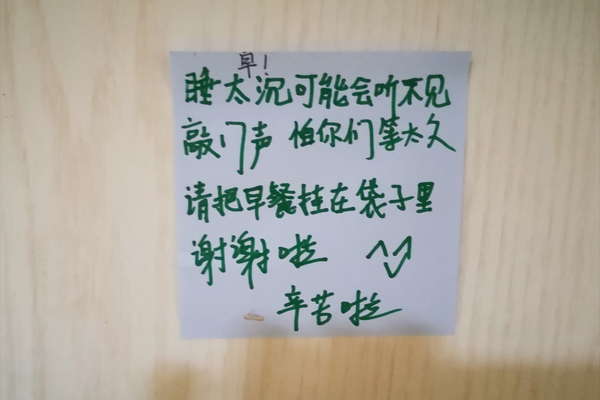 早!
睡太沉可能会听不见
敲门声 怕你们等太久
请把早餐挂在袋子里
谢谢啦
辛苦啦